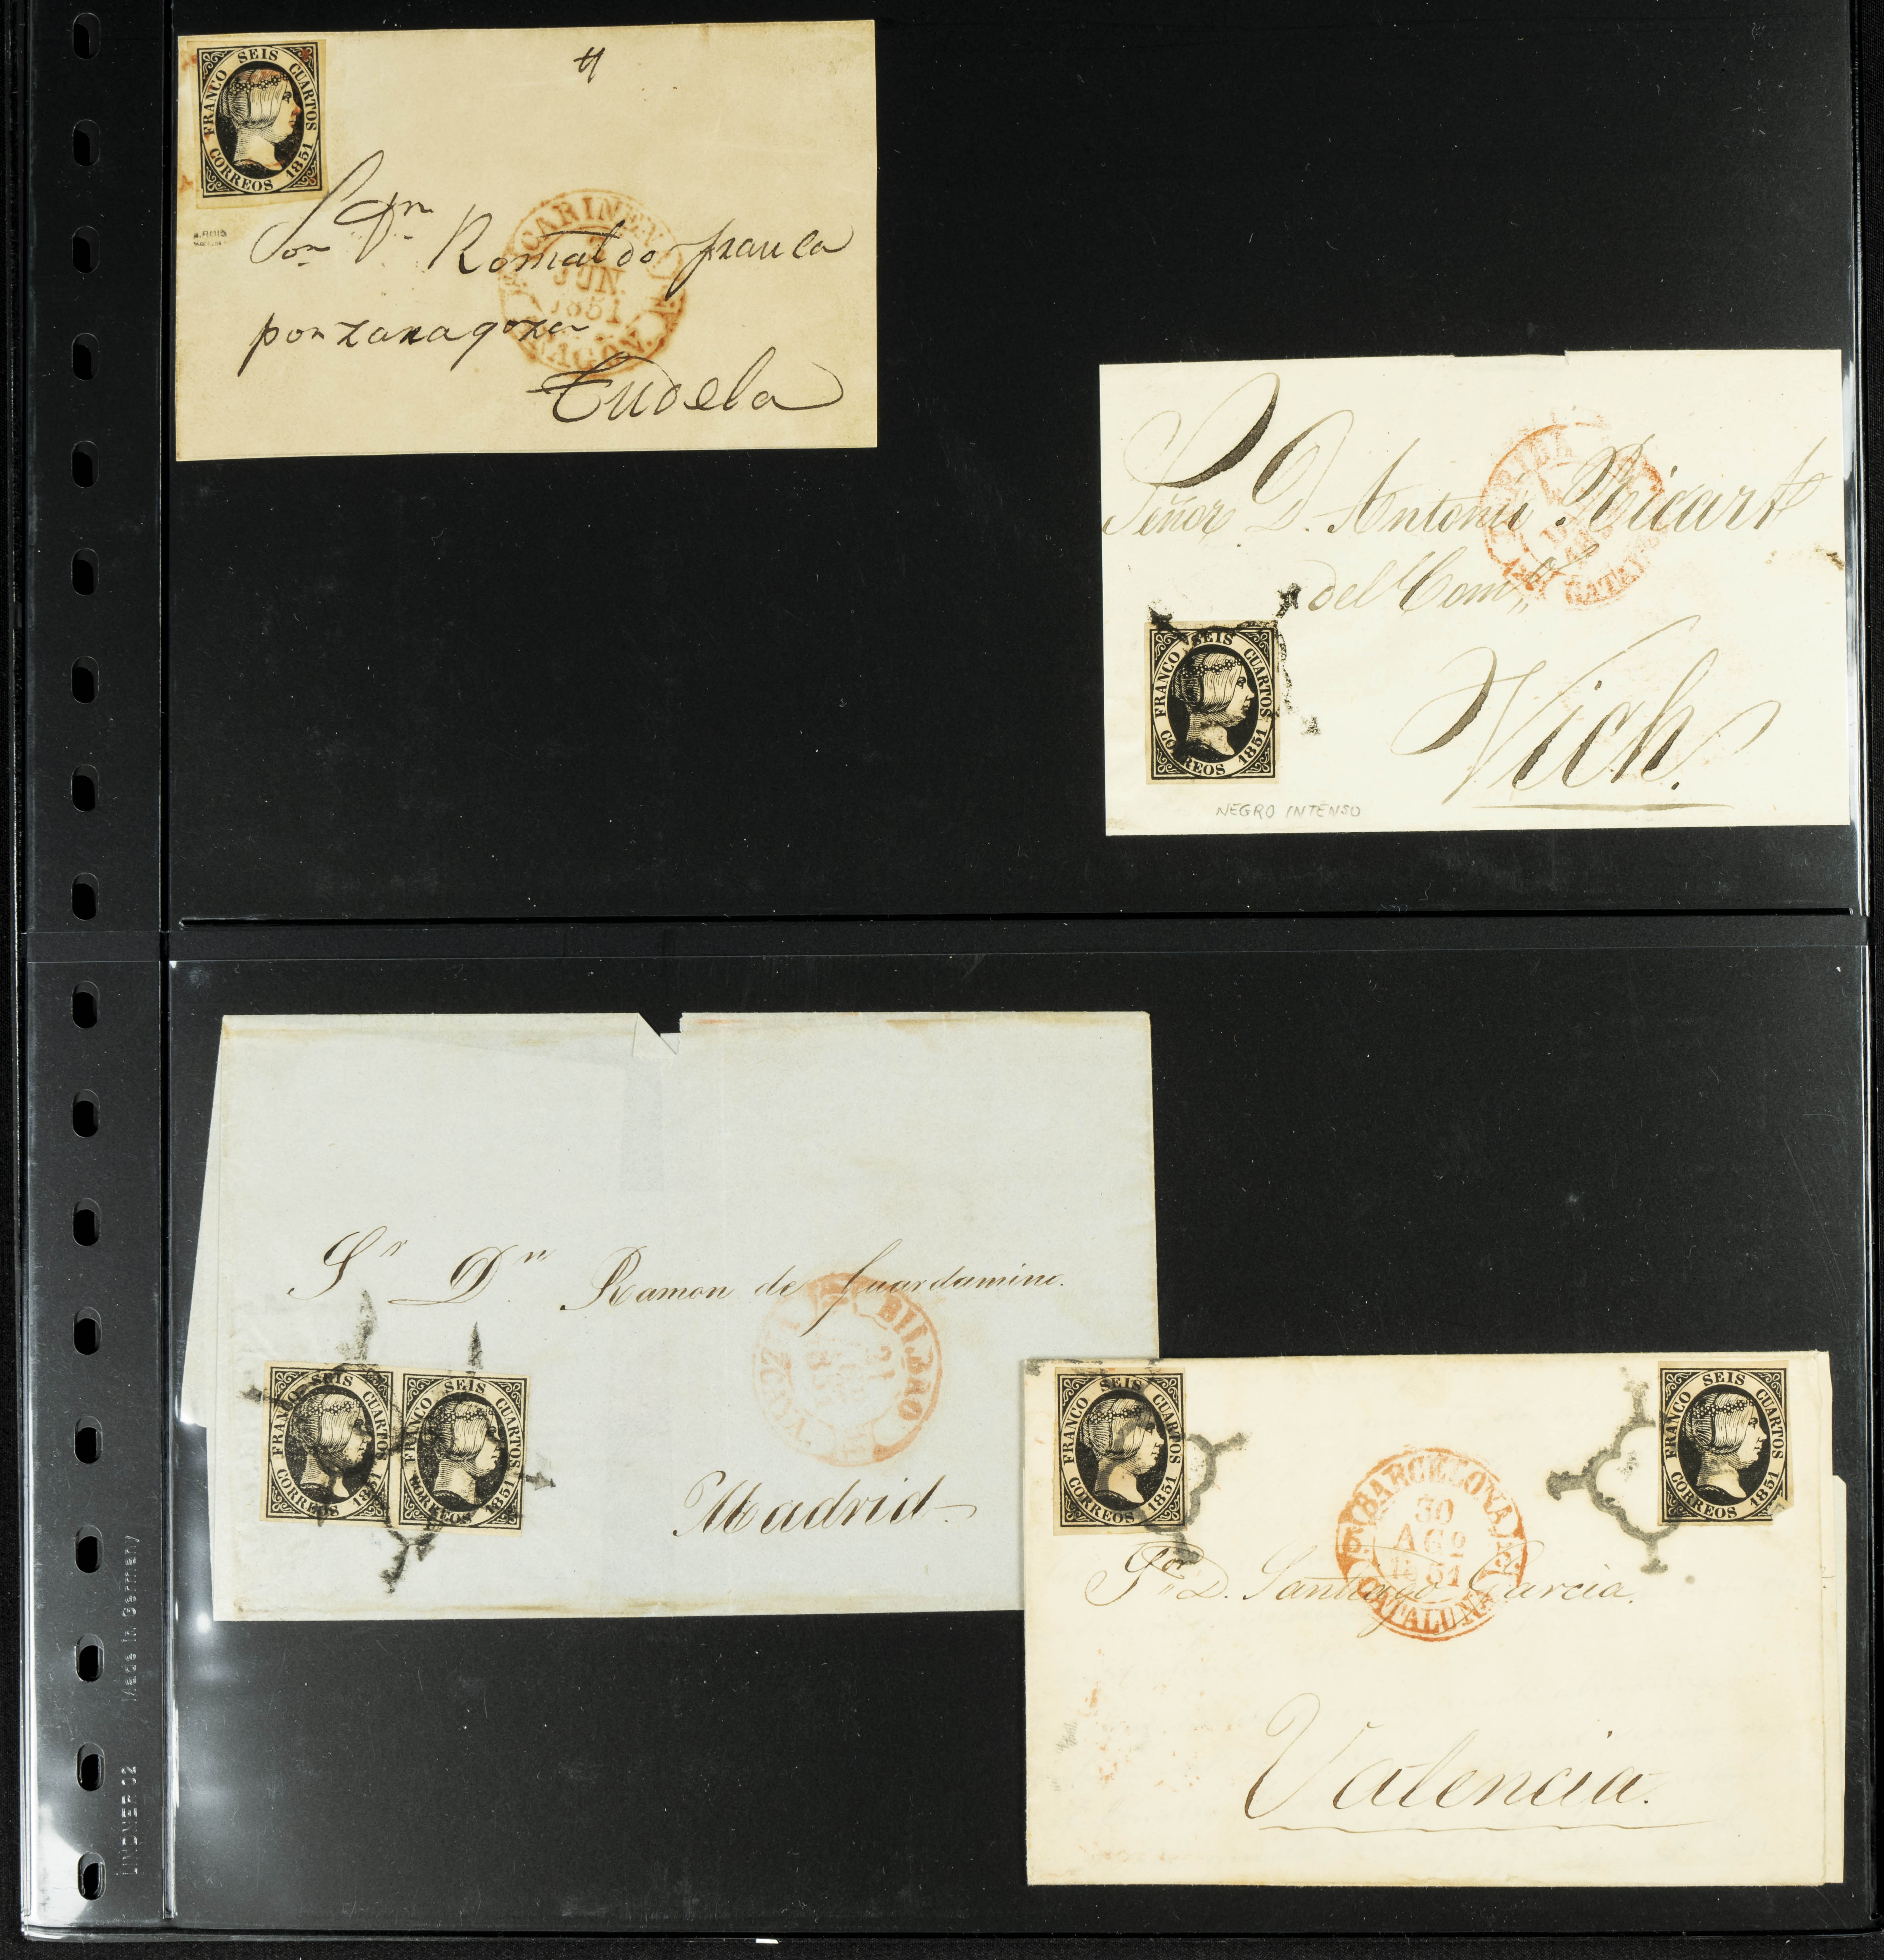 FRANCO SEIS CUARTOS
CORREOS 1851
Sor Dn Romualdo franca
por zaragoza
Tudela
CARIÑENA
JUN.
1851
ARAGON.
Señor D. Antonio Ricart
del Com.o
Vich.
CATAL
FRANCO SEIS CUARTOS
CORREOS 1851
NEGRO INTENSO
Sr Dn Ramon de Guardamino.
Madrid
BILBAO
21
FRANCO SEIS CUARTOS
CORREOS 1851
FRANCO SEIS CUARTOS
CORREOS 1851
FRANCO SEIS CUARTOS
CORREOS 1851
FRANCO SEIS CUARTOS
CORREOS 1851
BARCELONA
30
AGO
1851
CATALUÑA
Sor D. Santiago Garcia.
Valencia.
LINDNER 02 Made in Germany